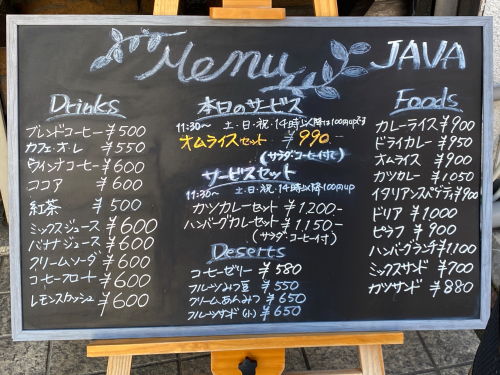 Menu
JAVA
Drinks
ブレンドコーヒー ¥500
カフェ・オ・レ ¥550
ウィンナコーヒー ¥600
ココア ¥600
紅茶 ¥500
ミックスジュース ¥600
バナナジュース ¥600
クリームソーダ ¥600
コーヒーフロート ¥600
レモンスカッシュ ¥600
本日のサービス
11:30〜 土・日・祝・14時以降は100円upです
オムライスセット ¥990-
(サラダ・コーヒー付き)
サービスセット
11:30〜 土・日・祝・14時以降100円up
カツカレーセット ¥1,200-
ハンバーグカレーセット ¥1,150-
(サラダ・コーヒー付)
Deserts
コーヒーゼリー ¥580
フルーツみつ豆 ¥550
クリームあんみつ ¥650
フルーツサンド(小) ¥650
Foods
カレーライス ¥900
ドライカレー ¥950
オムライス ¥900
カツカレー ¥1,050
イタリアンスパゲティ ¥900
ドリア ¥1000
ピラフ ¥900
ハンバーグランチ ¥1100
ミックスサンド ¥700
カツサンド ¥880